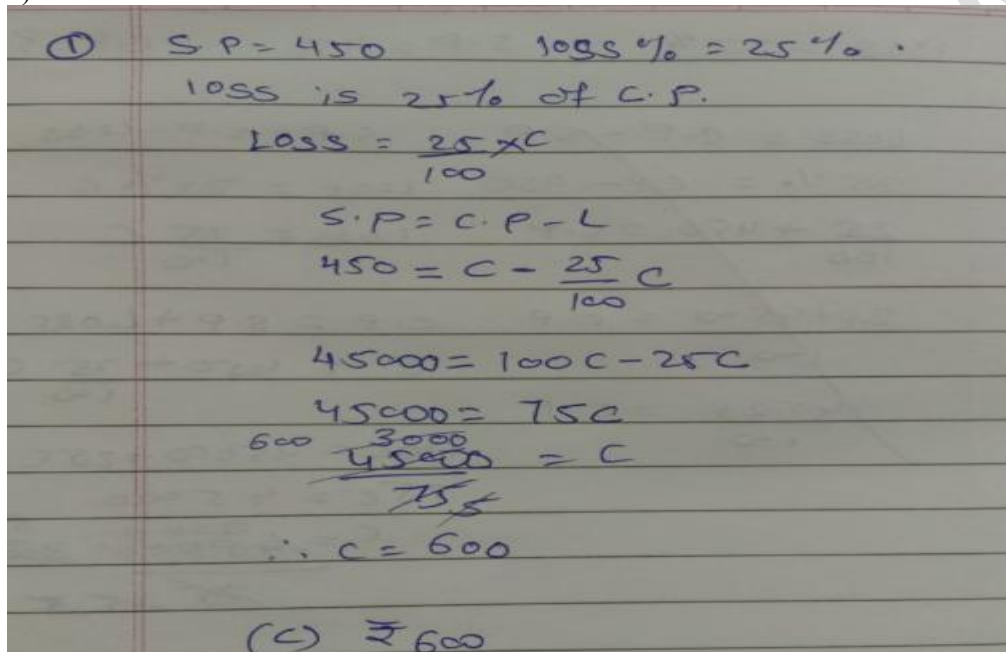 ① S.P = 450 loss % = 25 % .
loss is 25% of C.P.
Loss = 25/100 × C
S.P = C.P - L
450 = C - 25/100 C
45000 = 100C - 25C
45000 = 75C
600 3000
45000/75 5 = C
∴ C = 600
(C) ₹ 600